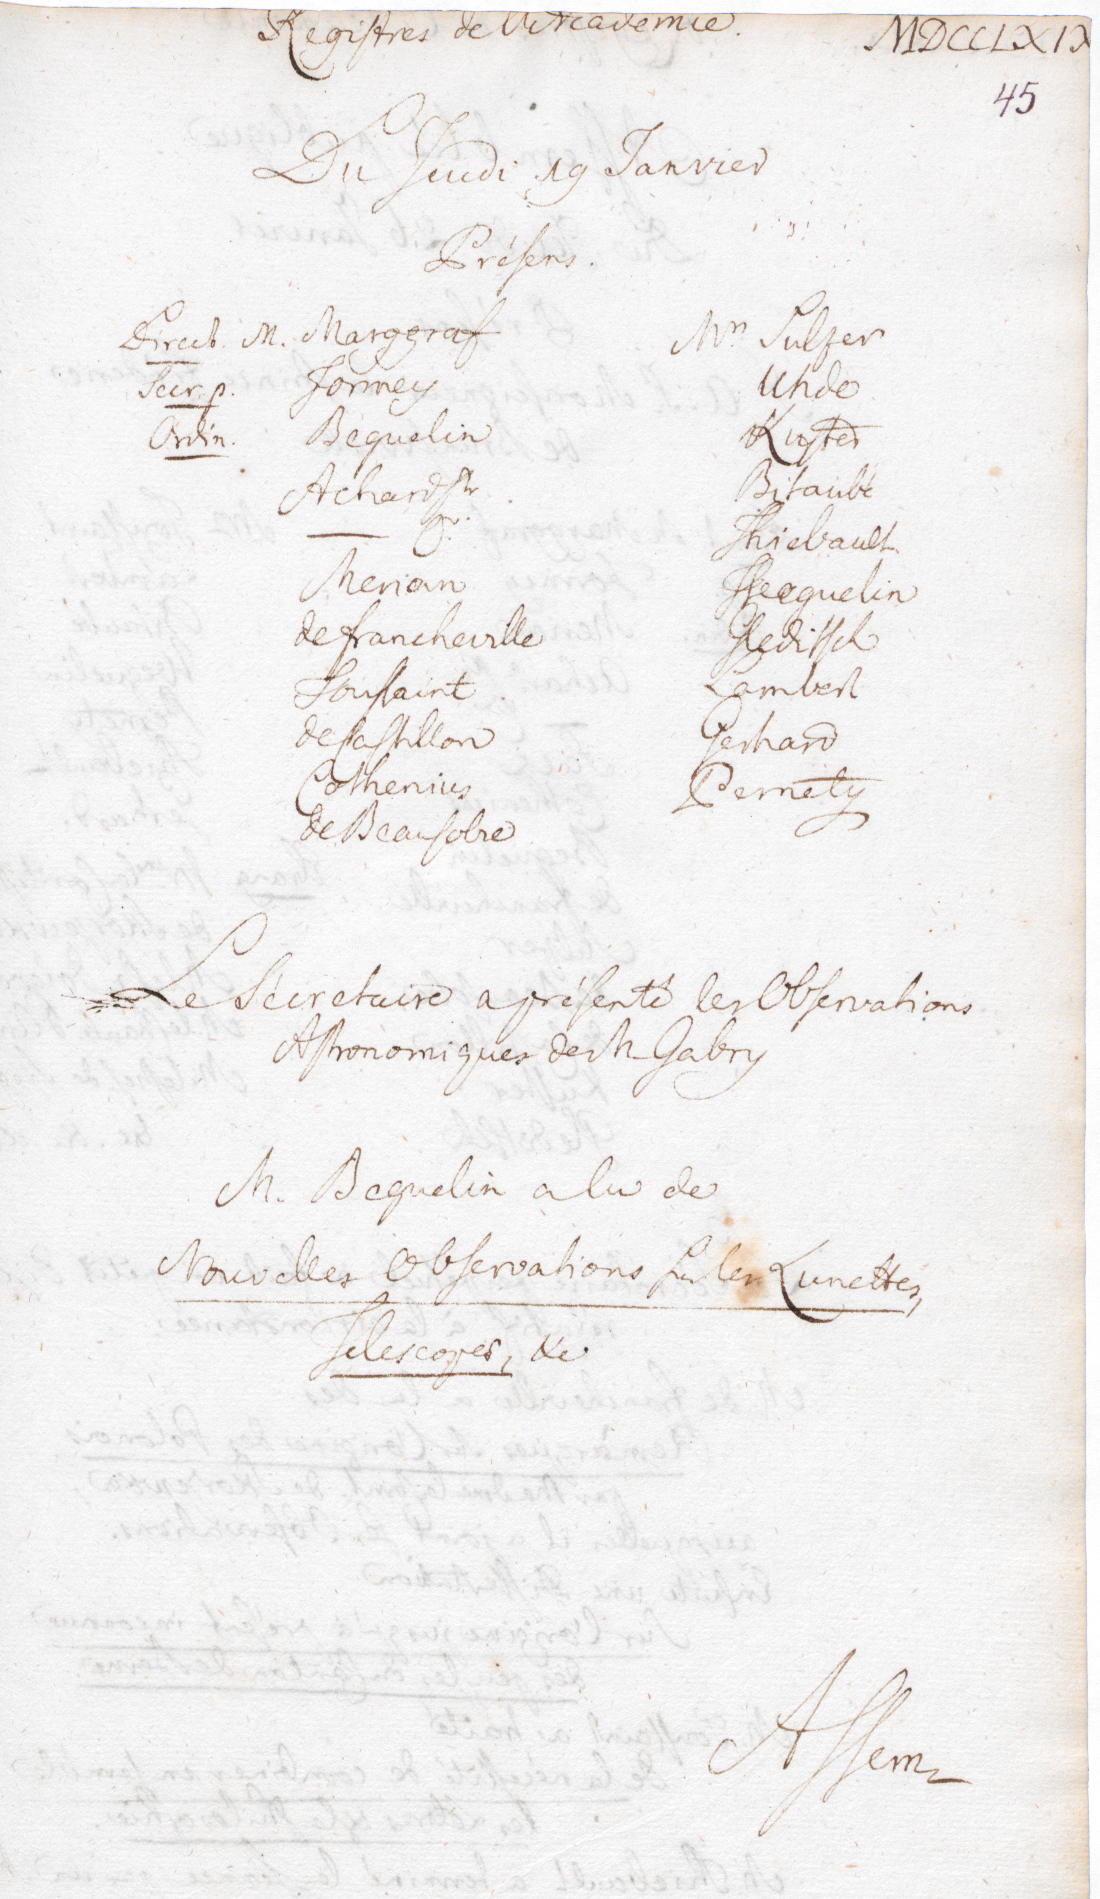 Registres de l'Academie.
MDCCLXIX
45
Du Jeudi 19 Janvier
Présens.
Direct. M. Marggraf
Secr. p. Formey
Ordin. Beguelin
Achard Sr
gr.
Merian
de Francheville
Toussaint
de Castillon
Cothenius
de Beausobre
Mrs Sulzer
Uhde
Kuster
Bitaubé
Thiebault
Weguelin
Gleditsch
Lambert
Gerhard
Pernety
Le Sécretaire a présenté les Observations
Astronomiques de M. Gabry
M. Beguelin a lu de
Nouvelles Observations sur les Lunettes,
Telescopes, &c
Assem